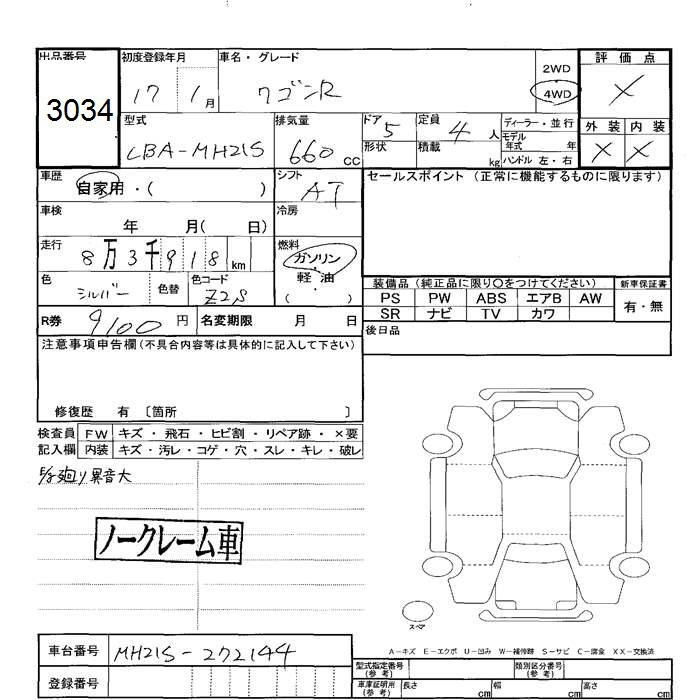 出品番号 初度登録年月 車名・グレード 2WD 評価点
3034 17 1月 ワゴンR 4WD ×
型式 排気量 ドア 5 定員 4人 ディーラー・並行 外装 内装
LBA-MH21S 660cc 形状 積載 kg モデル年式 年 × ×
ハンドル 左・右
車歴 シフト セールスポイント(正常に機能するものに限ります)
自家用・( ) AT
車検 冷房
年 月( 日)
走行 燃料
8万3千918km ガソリン・軽油
色 色替 色コード ( ) 装備品(純正品に限り○をつけてください) 新車保証書
シルバー Z2S PS PW ABS エアB AW 有・無
R券 9100円 名変期限 月 日 SR ナビ TV カワ
注意事項申告欄(不具合内容等は具体的に記入して下さい) 後日品
修復歴 有 〔箇所 〕
検査員 FW キズ・飛石・ヒビ割・リペア跡・×要
記入欄 内装 キズ・汚レ・コゲ・穴・スレ・キレ・破レ
廻り異音大
ノークレーム車
スペア
A－キズ E－エクボ U－凹み W－補修跡 S－サビ C－腐食 XX－交換済
車台番号 MH21S-272144 型式指定番号(参考) 類別区分番号(参考)
登録番号 車庫証明用(参考) 長さ cm 幅 cm 高さ cm